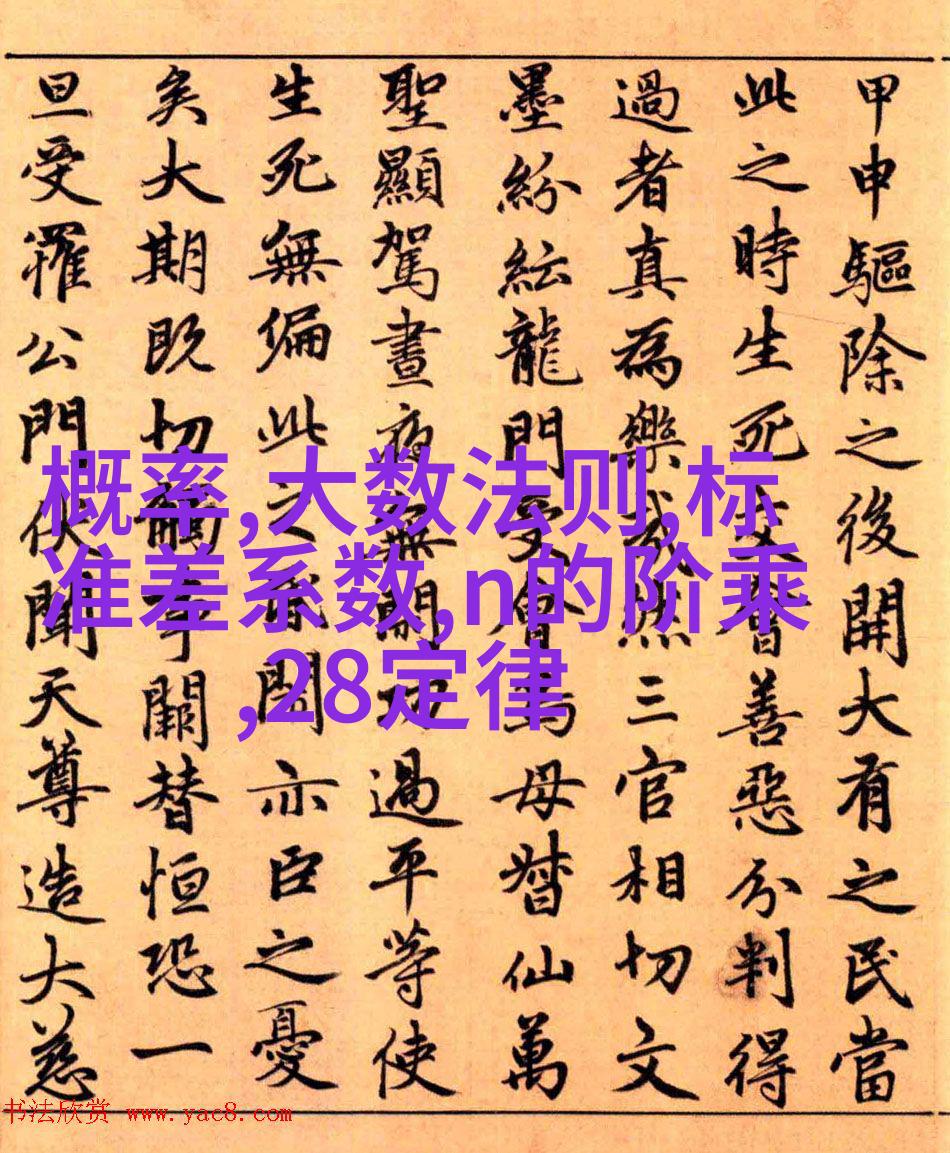 甲申驅除之後開大有之民當
此之時生死善惡分判得
過者真為樂哉然三官相切文
墨紛紜龍門受會母督仙萬
聖顯駕晝夜無閑功過平等使
生死無偏此之聞亦臣之憂
矣大期既切事闕替恒恐一
旦受罹公門伏聞天尊造大慈
概率,大数法则,标
准差系数,n的阶乘
,28定律
书法欣赏 www.yac8.com